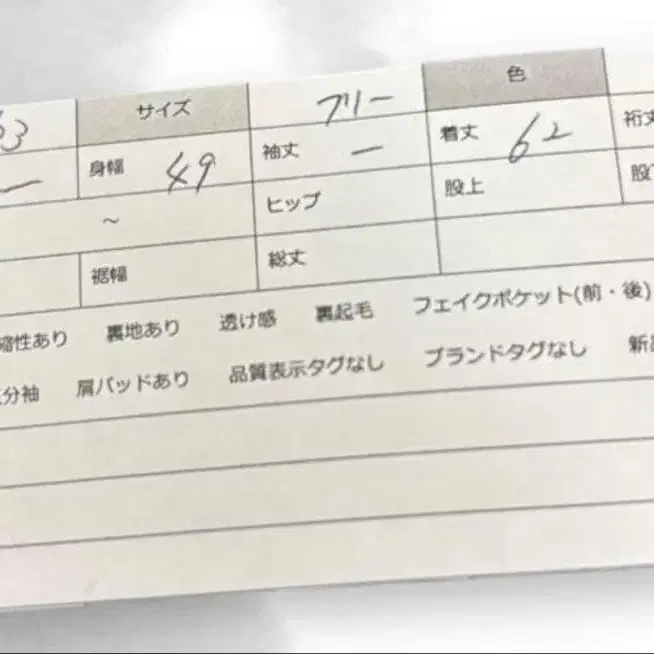 サイズ フリー 色
身幅 49 袖丈 ー 着丈 62 裄丈
～ ヒップ 股上 股下
裾幅 総丈
縮性あり 裏地あり 透け感 裏起毛 フェイクポケット(前・後)
分袖 肩パッドあり 品質表示タグなし ブランドタグなし 新